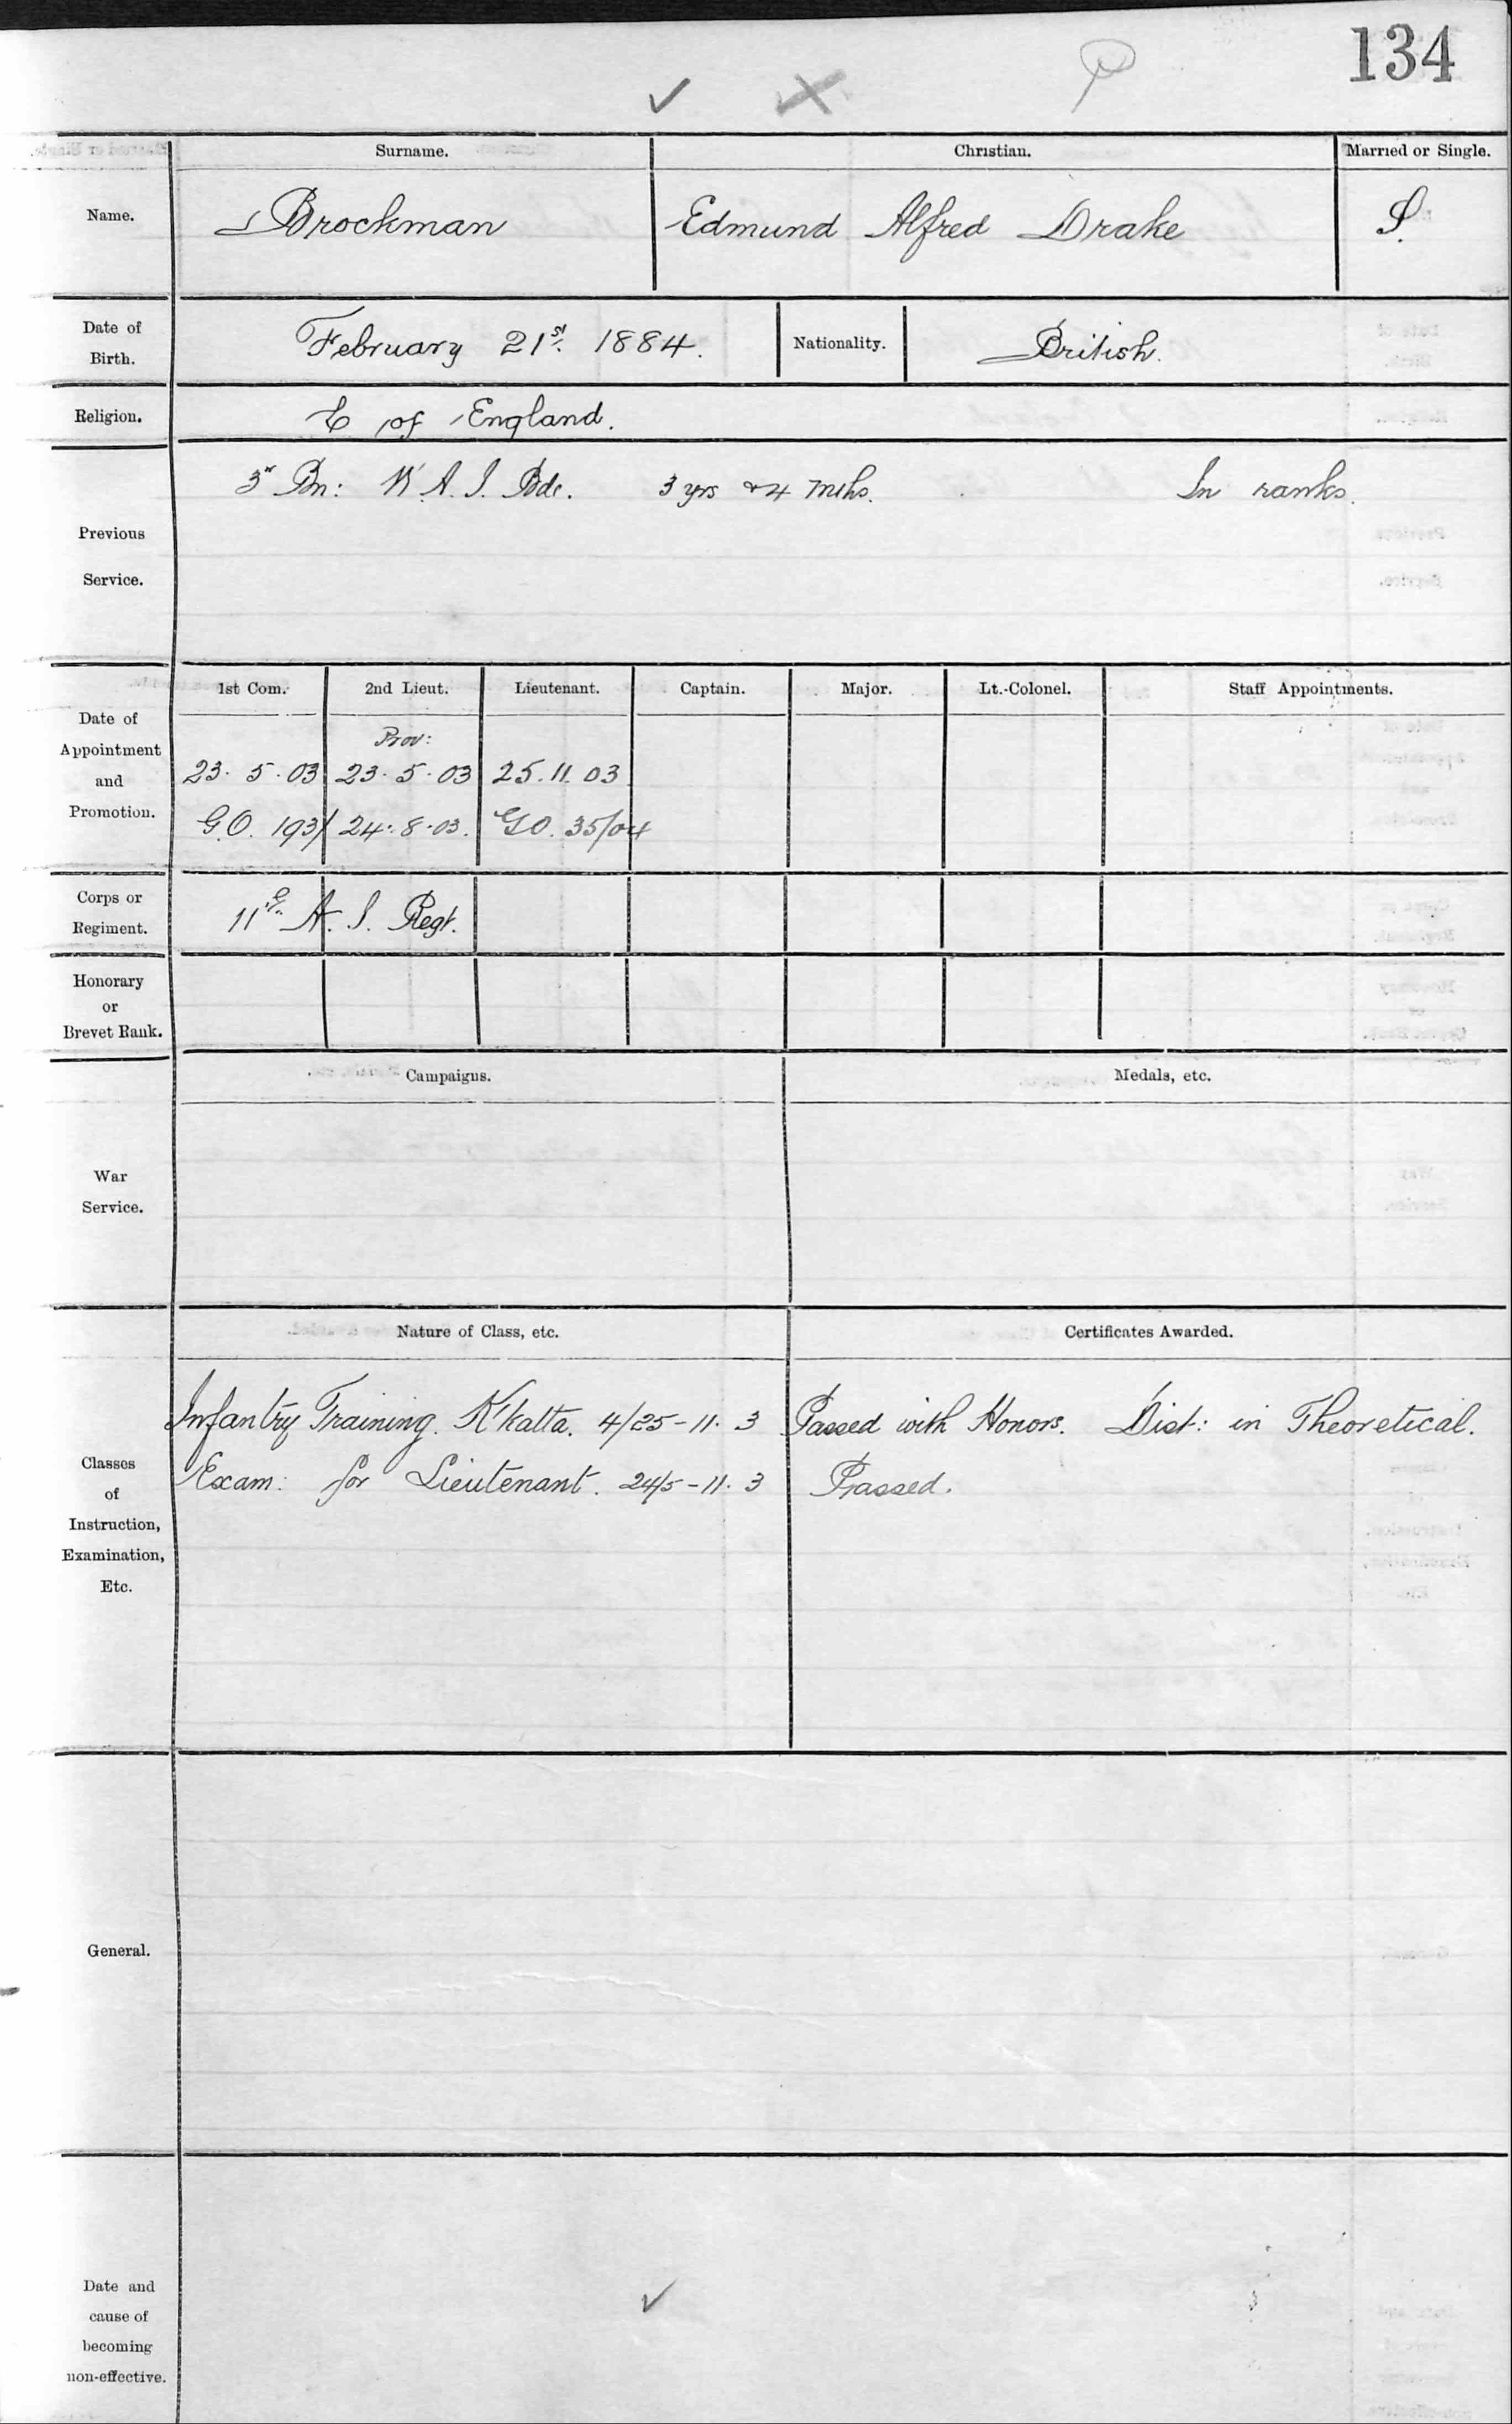 134
Surname. Christian. Married or Single.
Name. Brockman Edmund Alfred Drake S.
Date of Birth. February 21st. 1884. Nationality. British.
Religion. C of England.
Previous Service. 3r Bn: W. A. I. Bde. 3 yrs & 4 mths. In ranks.
1st Com. 2nd Lieut. Lieutenant. Captain. Major. Lt.-Colonel. Staff Appointments.
Date of Appointment and Promotion.
Prov:
23. 5. 03 23. 5. 03 25. 11. 03
G.O. 193/ 24. 8. 03. G.O. 35/04
Corps or Regiment. 11th A. I. Regt.
Honorary or Brevet Rank.
Campaigns. Medals, etc.
War Service.
Nature of Class, etc. Certificates Awarded.
Classes of Instruction, Examination, Etc.
Infantry Training. K'katta. 4/25-11. 3 Passed with Honors. Dist: in Theoretical.
Exam: for Lieutenant. 24/5-11. 3 Passed.
General.
Date and cause of becoming non-effective.